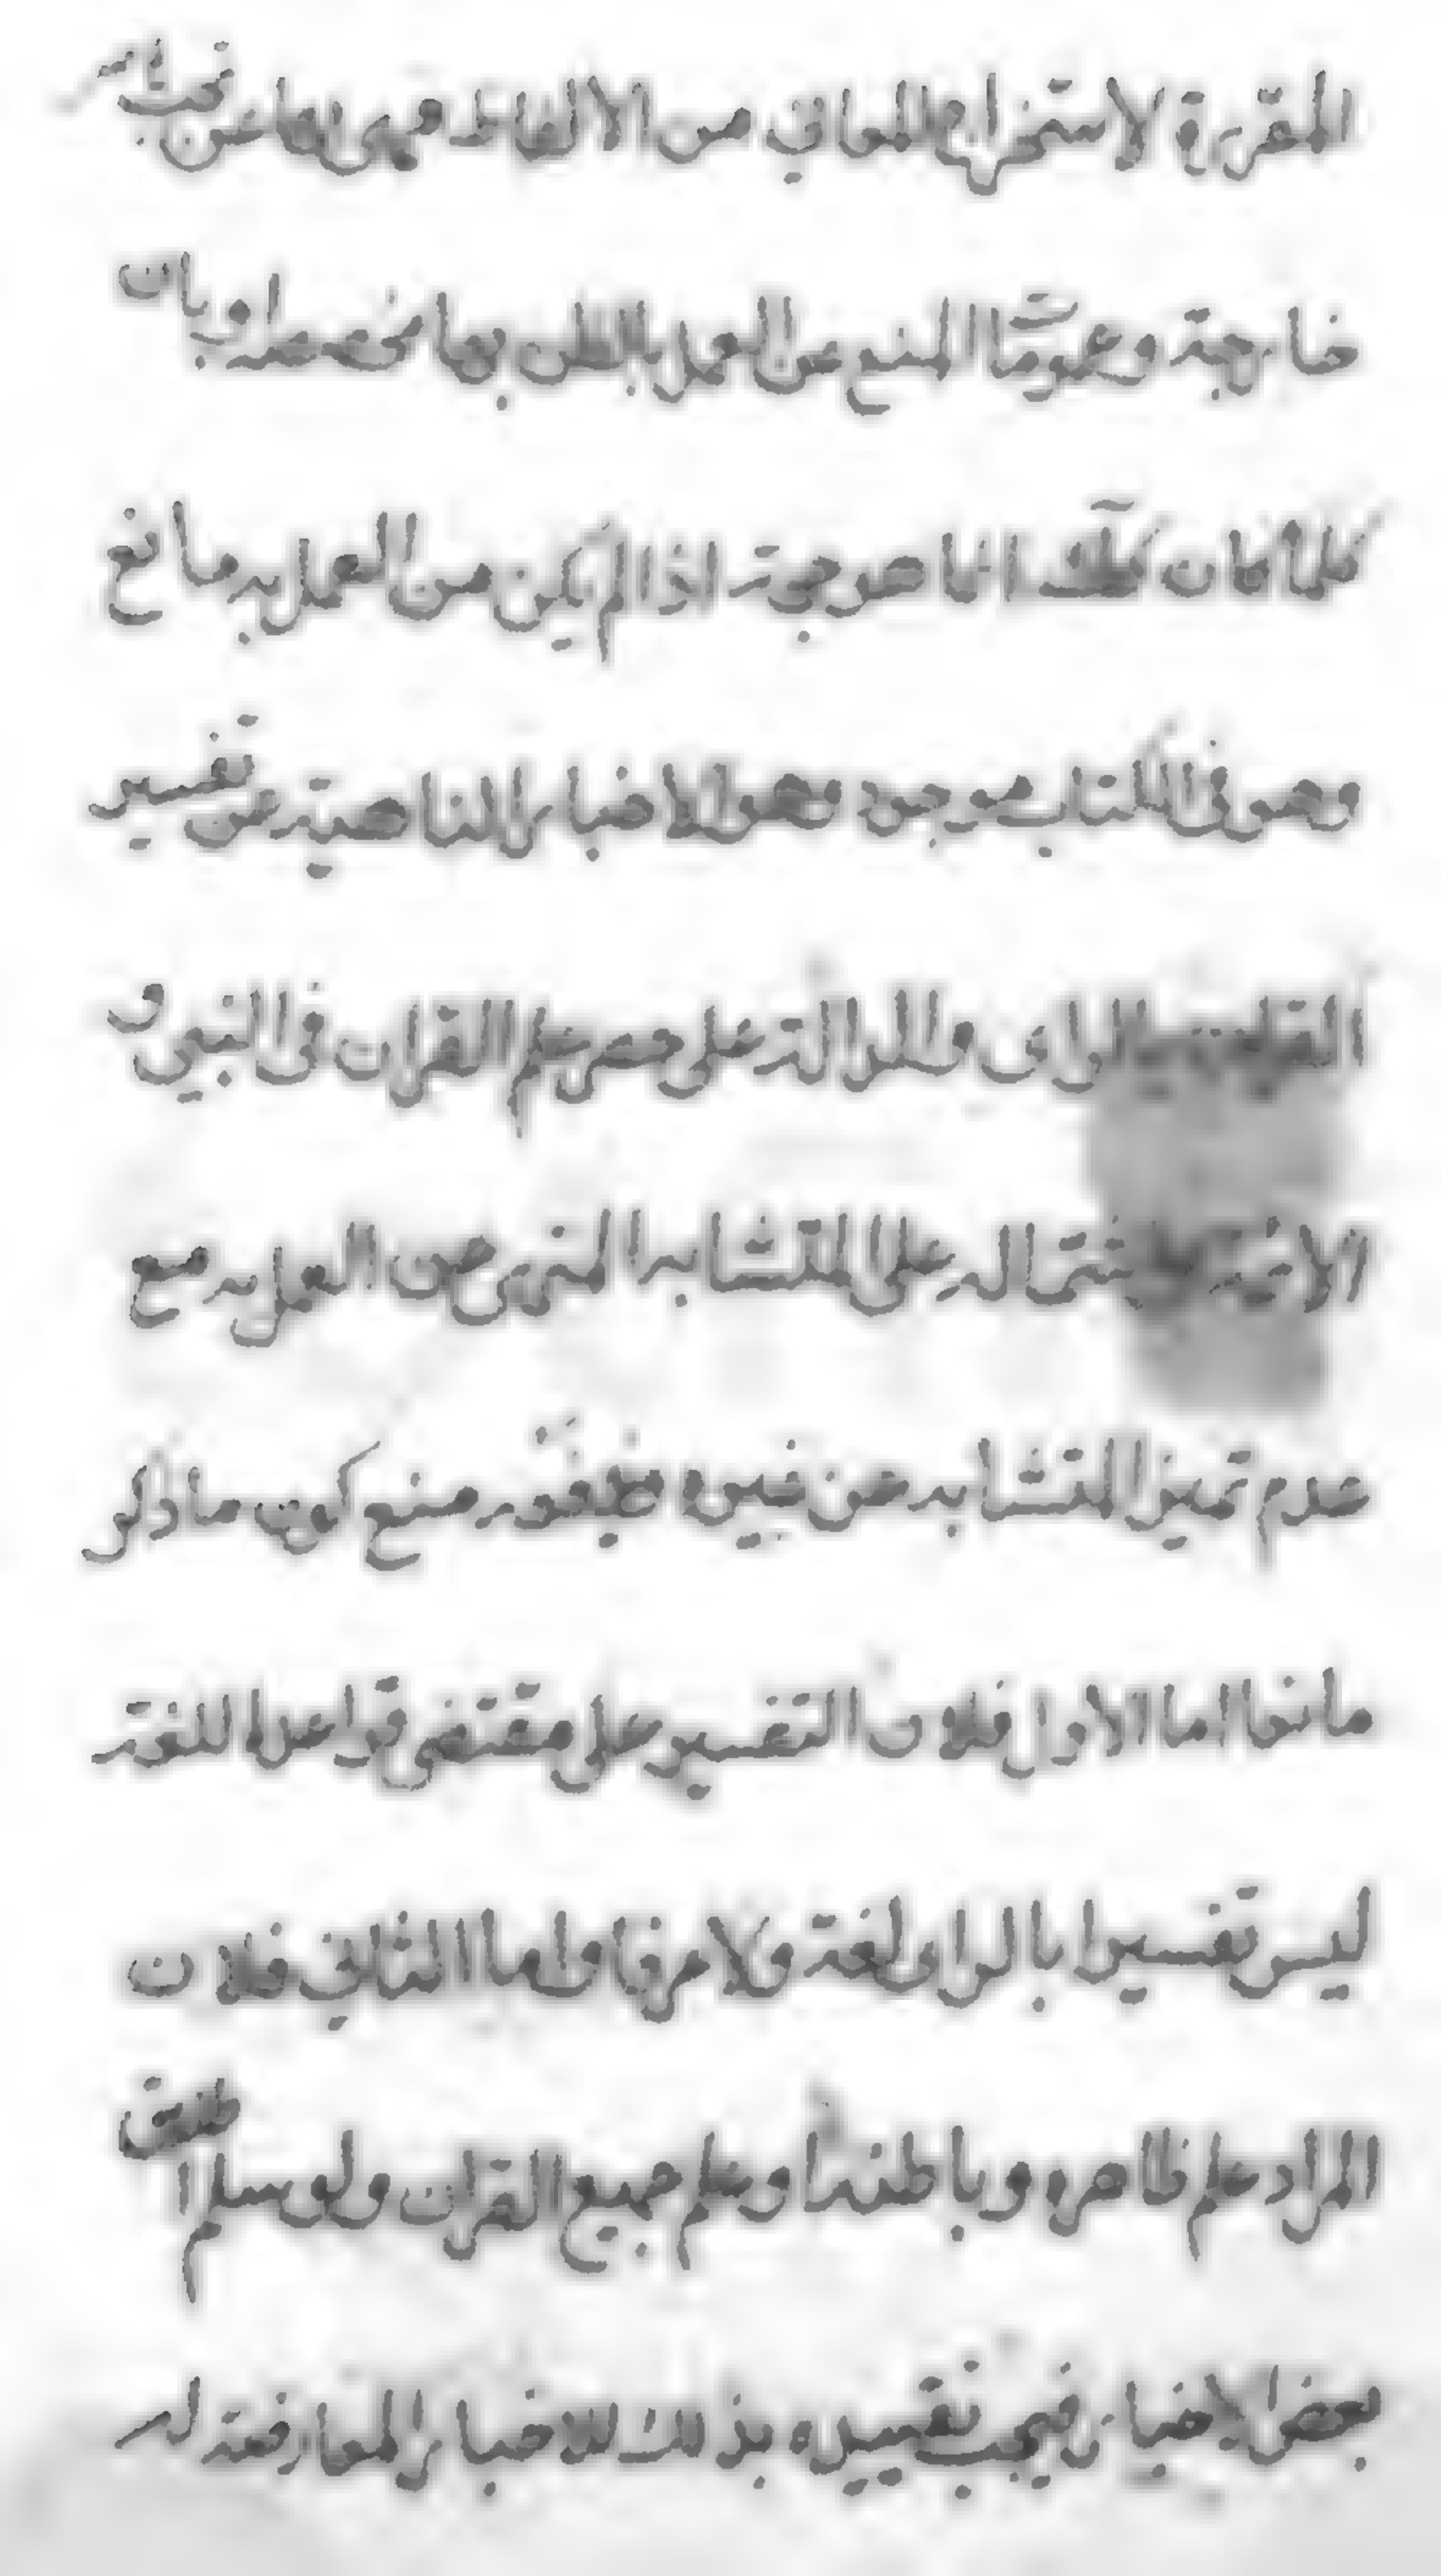 المقررة لاستخراج المعاني من الالفاظ فهي ايضا عن تحتها
خارجة وعموما المنع عن العمل بالظن بها مخصصة او بان
كلما كان كك انما هو حجة اذا لم يكن من العمل به مانع
وهو فى الكتاب موجود وهو الاخبار الناهية عن تفسير
القران بالراى والدالة على حصر علم القران فى النبي و
الائمة لاشتماله على المتشابه المنهى عن العمل به مع
عدم تميز المتشابه عن غيره ففيه منع كون ما ذكر
مانعا اما الاول فلان التفسير على مقتضى قواعد اللغة
ليس تفسيرا بالراى لغة ولا عرفا واما الثاني فلان
المراد علم ظاهره وباطنه او علم جميع القران ولو سلم اطلاق
بعض الاخبار فيجب تقييده بذلك للاخبار المعارضة له